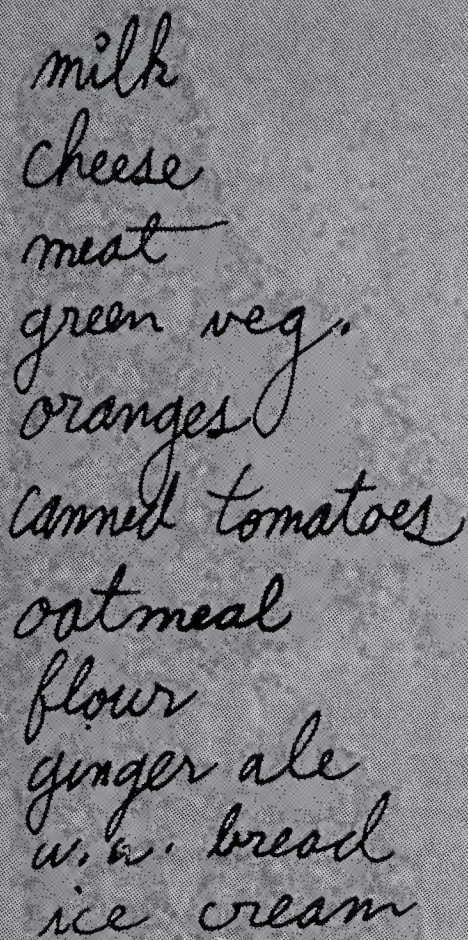 milk
cheese
meat
green veg.
oranges
canned tomatoes
oatmeal
flour
ginger ale
bread
ice cream